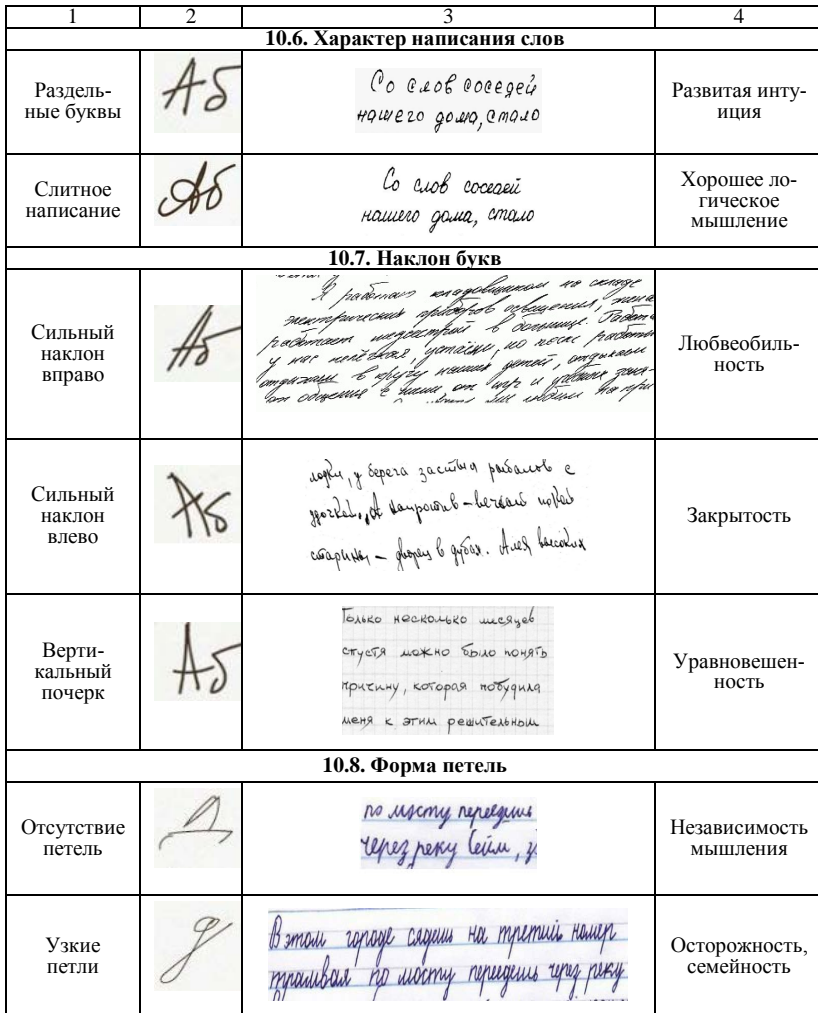 1 2 3 4
10.6. Характер написания слов
Раздель-
ные буквы
Аб
Со слов соседей
нашего дома, стало
Развитая инту-
иция
Слитное
написание
Аб
Со слов соседей
нашего дома, стало
Хорошее ло-
гическое
мышление
10.7. Наклон букв
Сильный
наклон
вправо
Аб
Я работаю кладовщиком на складе
электрических приборов освещения, жена
работает медсестрой в больнице. Работа
у нас нелёгкая, устаём, но после работы
отдыхаем в кругу наших детей, отдыхаем
от общения с ними от игр и
Любвеобиль-
ность
Сильный
наклон
влево
Аб
лодки, у берега застыл рыболов с
удочкой. А напротив – вечный покой
старины – дворец в дубах. Алея высоких
Закрытость
Верти-
кальный
почерк
Аб
Только несколько месяцев
спустя можно было понять
причину, которая побудила
меня к этим решительным
Уравновешен-
ность
10.8. Форма петель
Отсутствие
петель
Д
по мосту переедешь
через реку Сейм,
Независимость
мышления
Узкие
петли
В этом городе сядешь на третий номер
трамвая по мосту переедешь через реку
Осторожность,
семейность